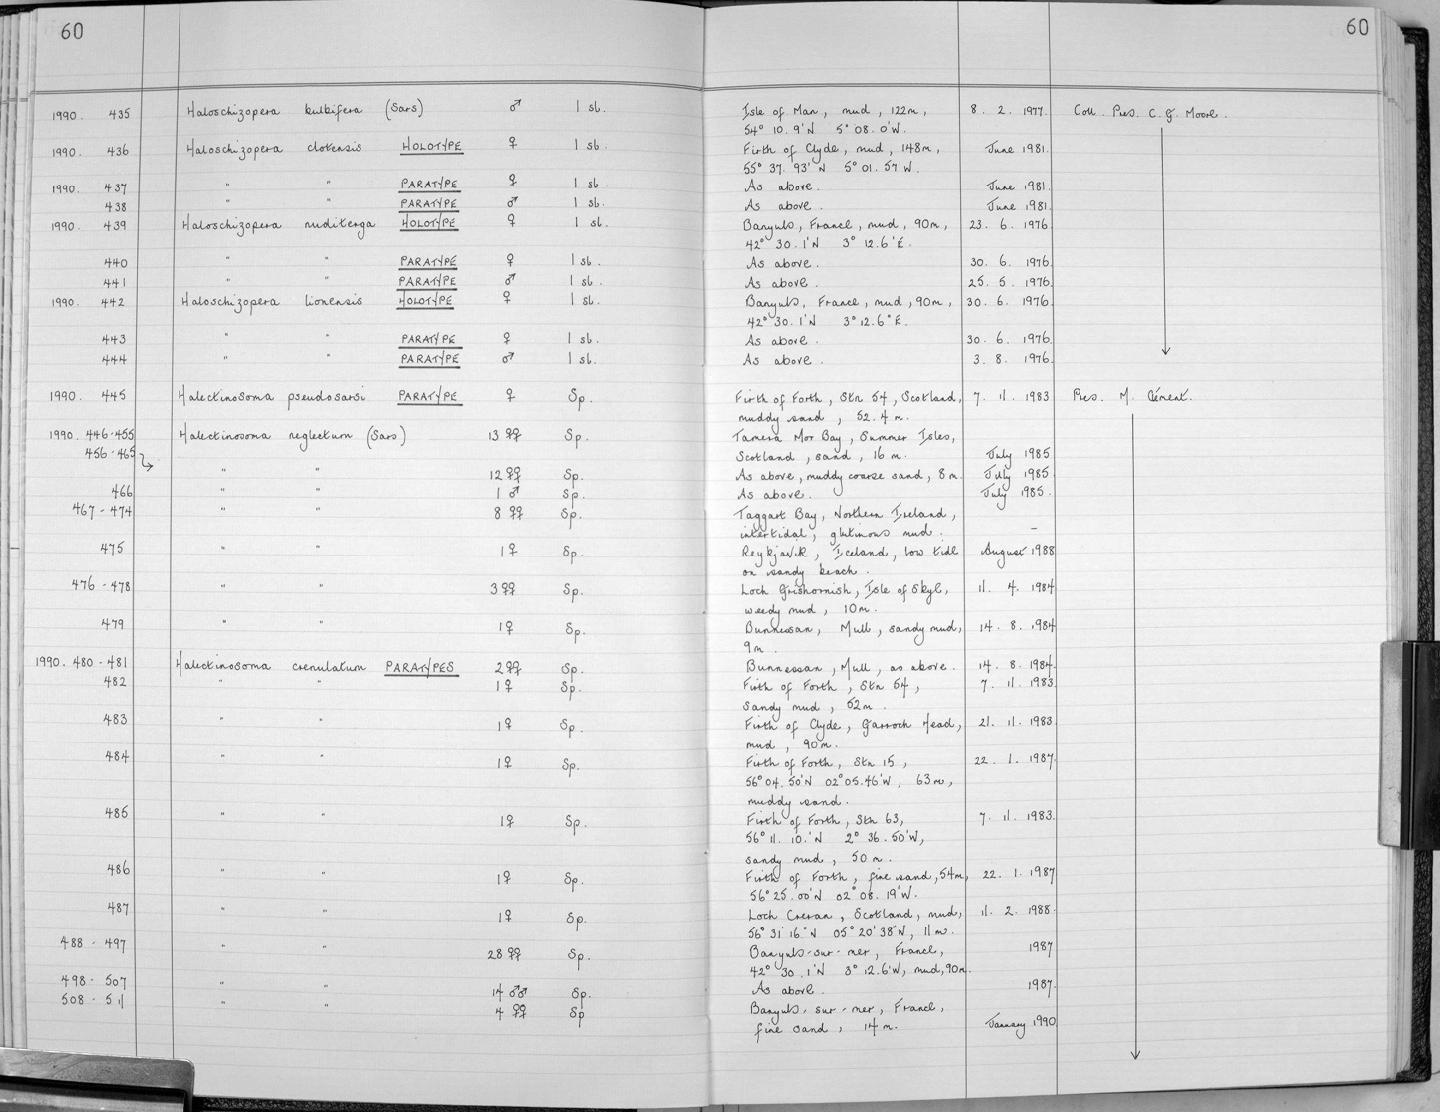 60
60
1990. 435 Haloschizopera bulbifera (Sars) ♂ 1 sl. Isle of Man, mud, 122m, 8. 2. 1977. Coll. Pres. C. G. Moore.
54° 10.9'N 5° 08.0'W.
1990. 436 Haloschizopera clotensis HOLOTYPE ♀ 1 sl. Firth of Clyde, mud, 148m, June 1981.
55° 37. 93' N 5° 01. 57 W.
1990. 437 " " PARATYPE ♀ 1 sl. As above. June 1981.
438 " " PARATYPE ♂ 1 sl. As above. June 1981.
1990. 439 Haloschizopera nuditerga HOLOTYPE ♀ 1 sl. Banyuls, France, mud, 90m, 23. 6. 1976
42° 30.1'N 3° 12.6'E.
440 " " PARATYPE ♀ 1 sl. As above. 30. 6. 1976.
441 " " PARATYPE ♂ 1 sl. As above. 25. 5. 1976.
1990. 442 Haloschizopera lionensis HOLOTYPE ♀ 1 sl. Banyuls, France, mud, 90m, 30. 6. 1976.
42° 30.1'N 3° 12.6'E.
443 " " PARATYPE ♀ 1 sl. As above. 30. 6. 1976.
444 " " PARATYPE ♂ 1 sl. As above. 3. 8. 1976.
1990. 445 Halectinosoma pseudosarsi PARATYPE ♀ Sp. Firth of Forth, Stn 54, Scotland, 7. 11. 1983 Pres. M. Clément.
muddy sand, 52.4 m.
1990. 446-455 Halectinosoma neglectum (Sars) 13 ♀♀ Sp. Tamera Mor Bay, Summer Isles,
456-465 Scotland, sand, 16 m. July 1985
" " 12 ♀♀ Sp. As above, muddy coarse sand, 8m. July 1985
466 " " 1 ♂ Sp. As above. July 1985.
467 - 474 " " 8 ♀♀ Sp. Taggart Bay, Northern Ireland,
intertidal, glutinous mud. -
475 " " 1♀ Sp. Reykjavik, Iceland, low tide August 1988
on sandy beach.
476 - 478 " " 3 ♀♀ Sp. Loch Grishornish, Isle of Skye, 11. 4. 1984
weedy mud, 10m.
479 " " 1♀ Sp. Bunnessan, Mull, sandy mud, 14. 8. 1984
9m.
1990. 480 - 481 Halectinosoma crenulatum PARATYPES 2♀♀ Sp. Bunnessan, Mull, as above. 14. 8. 1984.
482 " " 1♀ Sp. Firth of Forth, Stn 54, 7. 11. 1983.
sandy mud, 52m.
483 " " 1♀ Sp. Firth of Clyde, Garroch Head, 21. 11. 1983.
mud, 90m.
484 " " 1♀ Sp. Firth of Forth, Stn 15, 22. 1. 1987.
56° 04. 50'N 02° 05.46'W, 63m,
muddy sand.
485 " " 1♀ Sp. Firth of Forth, Stn 63, 7. 11. 1983.
56° 11. 10.'N 2° 36. 50'W,
sandy mud, 50 m.
486 " " 1♀ Sp. Firth of Forth, fine sand, 54m, 22. 1. 1987
56° 25. 00'N 02° 08. 19'W.
487 " " 1♀ Sp. Loch Creran, Scotland, mud, 11. 2. 1988.
56° 31' 16" N 05° 20' 38"N, 11m.
488 - 497 " " 28 ♀♀ Sp. Banyuls-sur-mer, France, 1987
42° 30.1'N 3° 12.6'W, mud, 90m.
498 - 507 " " 14 ♂♂ Sp. As above. 1987.
508 - 511 " " 4 ♀♀ Sp Banyuls-sur-mer, France,
fine sand, 14 m. January 1990